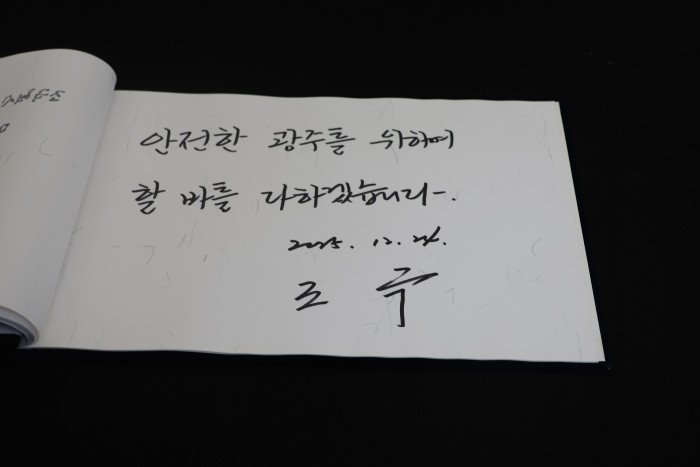 안전한 광주를 위하여
할 바를 다하겠습니다.
2025. 12. 24.
조 국